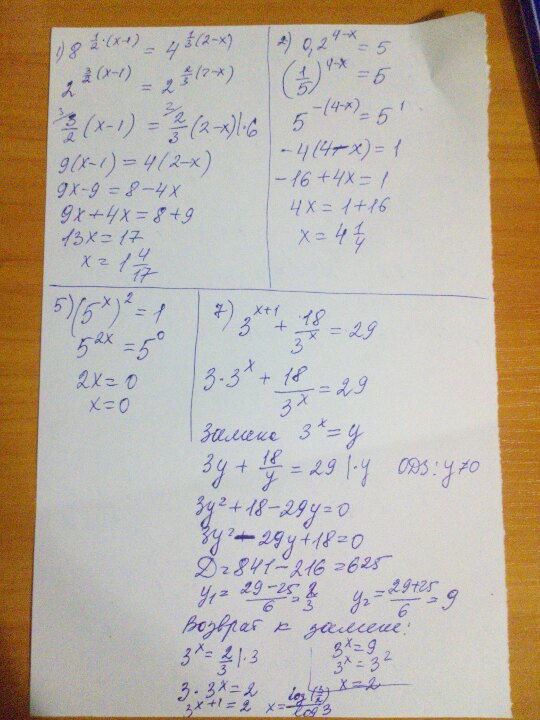 1) 8^{\frac{1}{2}·(x-1)} = 4^{\frac{1}{3}(2-x)}
2^{\frac{3}{2}(x-1)} = 2^{\frac{2}{3}(2-x)}
\frac{3}{2}(x-1) = \frac{2}{3}(2-x) |·6
9(x-1) = 4(2-x)
9x-9 = 8-4x
9x+4x = 8+9
13x = 17
x = 1\frac{4}{17}
2) 0,2^{4-x} = 5
(\frac{1}{5})^{4-x} = 5
5^{-(4-x)} = 5^1
-4(4-x) = 1
-16+4x = 1
4x = 1+16
x = 4\frac{1}{4}
5) (5^x)^2 = 1
5^{2x} = 5^0
2x = 0
x = 0
7) 3^{x+1} + \frac{18}{3^x} = 29
3·3^x + \frac{18}{3^x} = 29
Замена 3^x = y
3y + \frac{18}{y} = 29 |·y ОДЗ: y≠0
3y²+18-29y=0
3y²-29y+18=0
D=841-216=625
y₁=\frac{29-25}{6}=\frac{2}{3} y₂=\frac{29+25}{6}=9
Возврат к замене:
3^x = \frac{2}{3} |·3
3·3^x = 2
3^{x+1} = 2
3^x = 9
3^x = 3²
x = 2